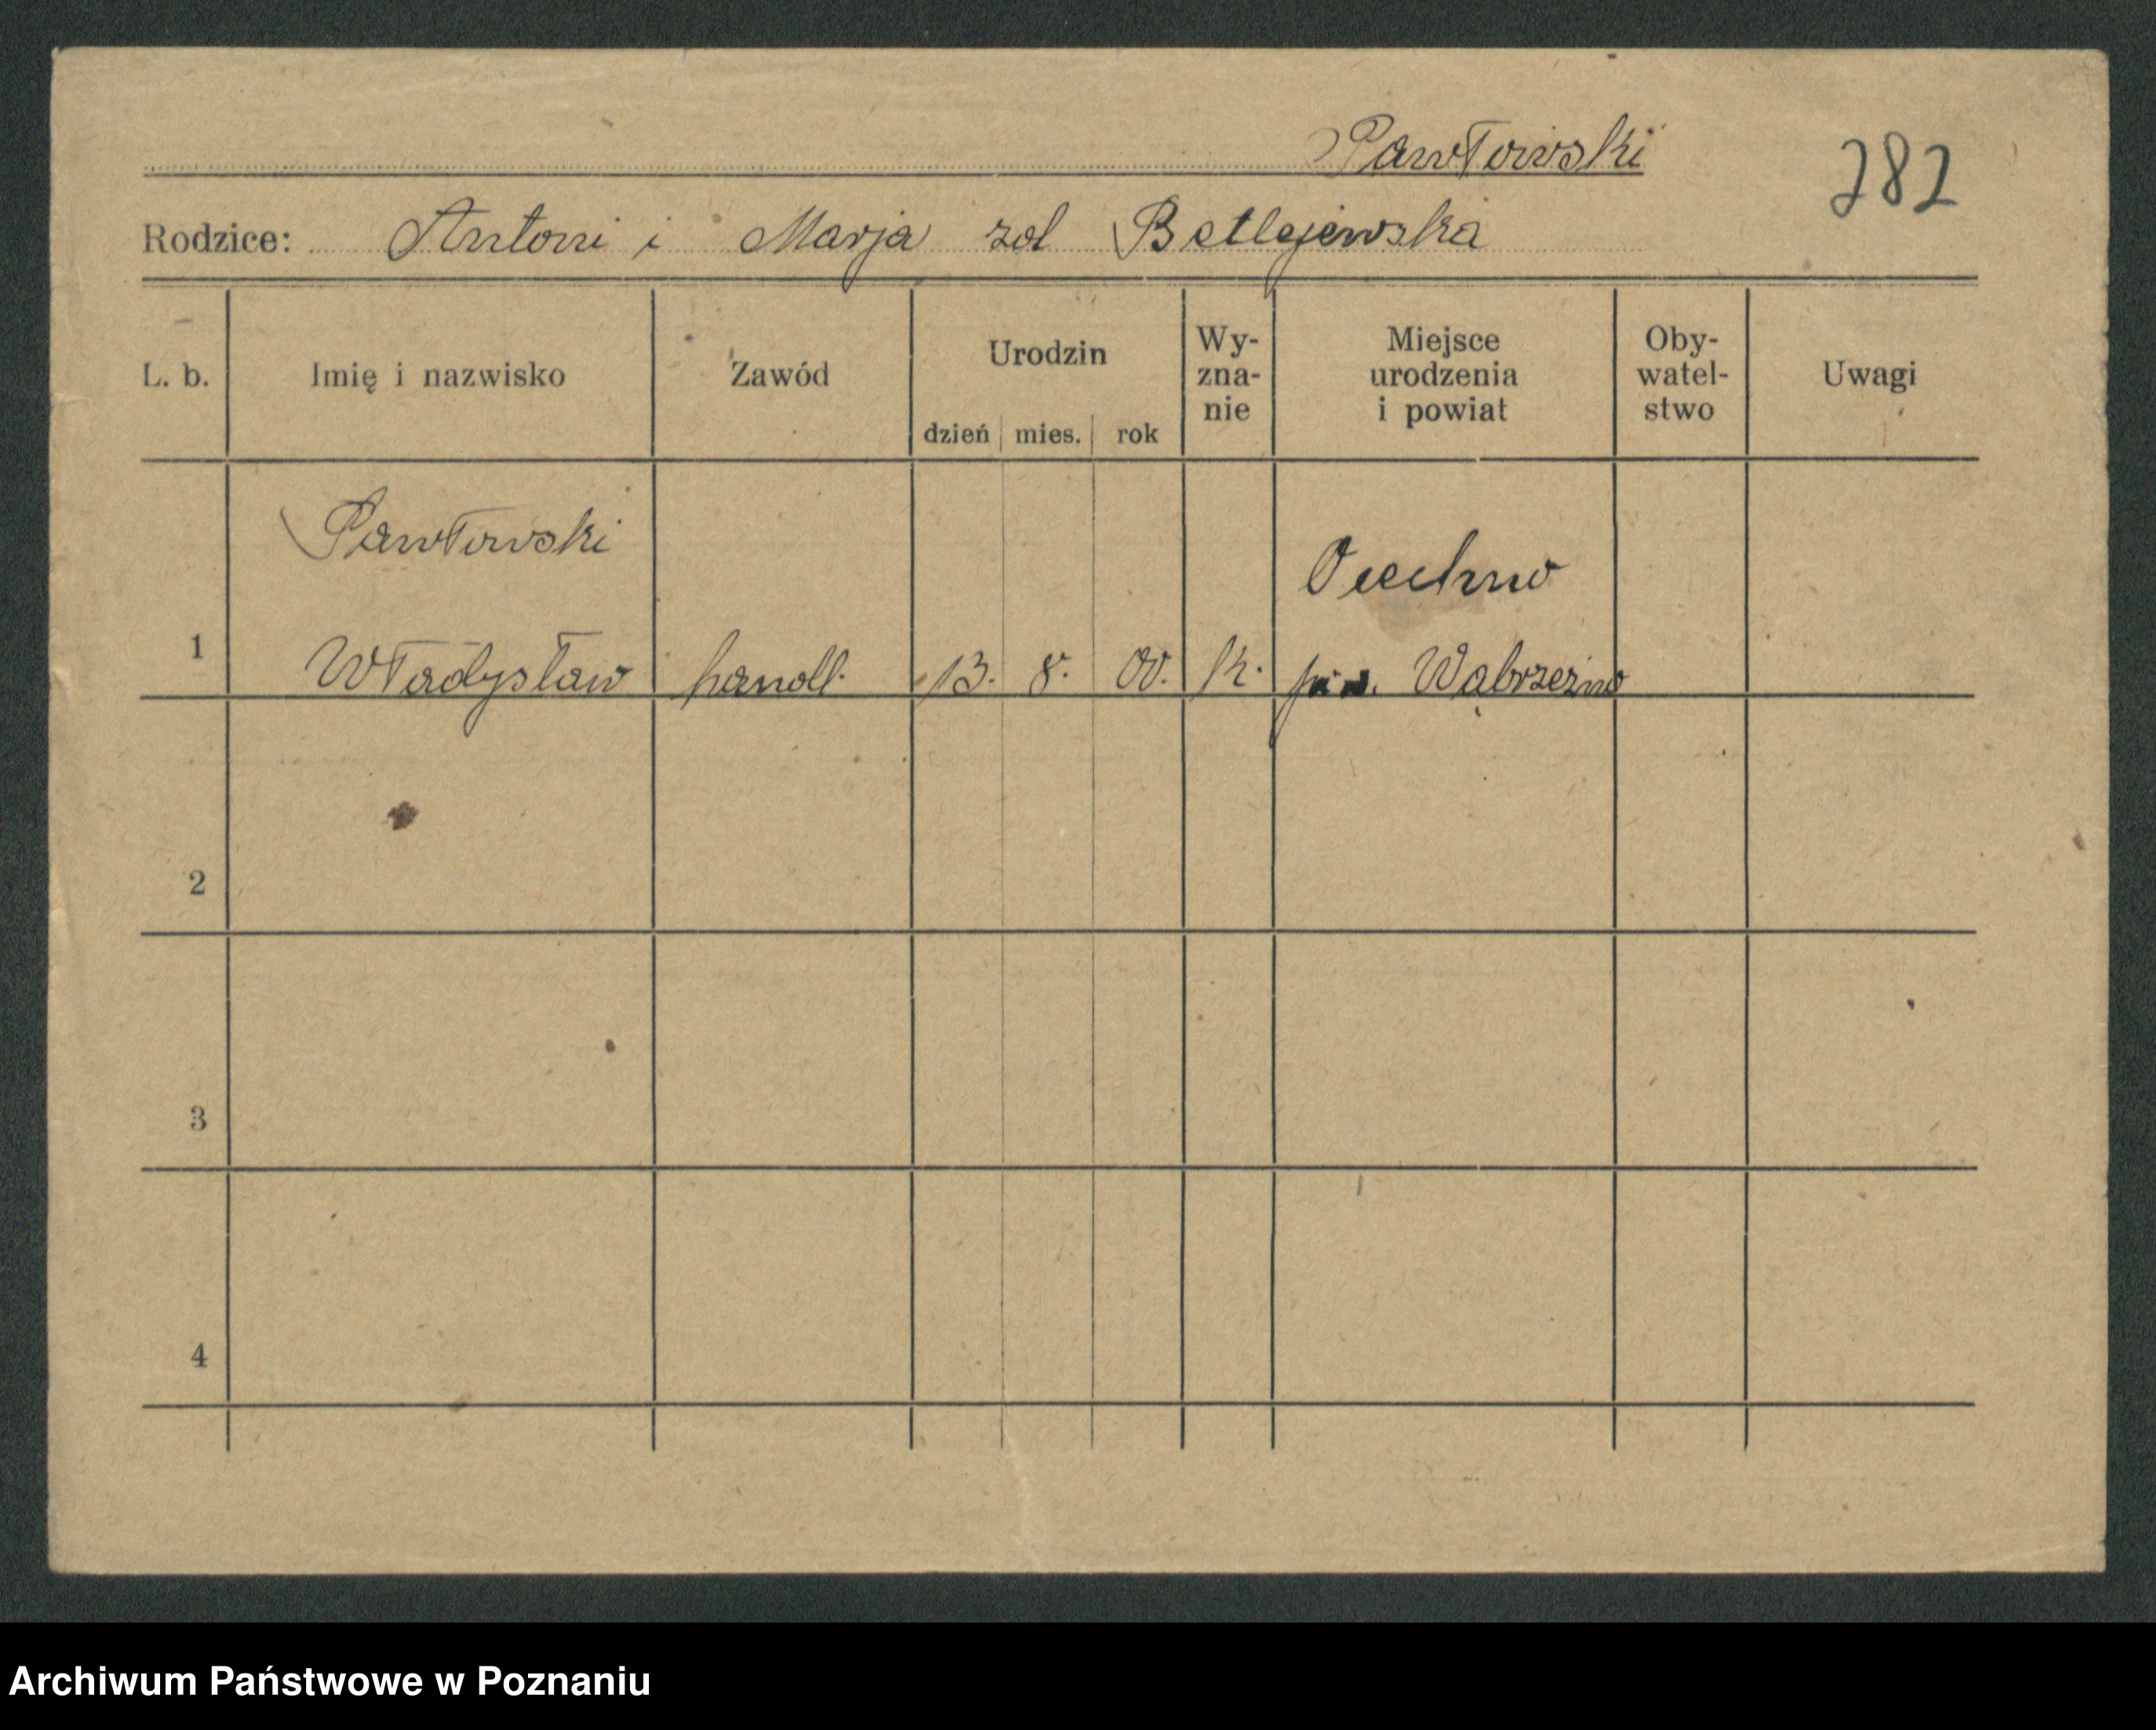 Pawłowski
282
Rodzice: Antoni i Marja zd Betlejewska
L. b. Imię i nazwisko Zawód Urodzin dzień mies. rok Wy-zna-nie Miejsce urodzenia i powiat Oby-watel-stwo Uwagi
Pawłowski
1 Władysław handl. 13. 8. 00. k. pow. Wąbrzeźno
2
3
4
Archiwum Państwowe w Poznaniu